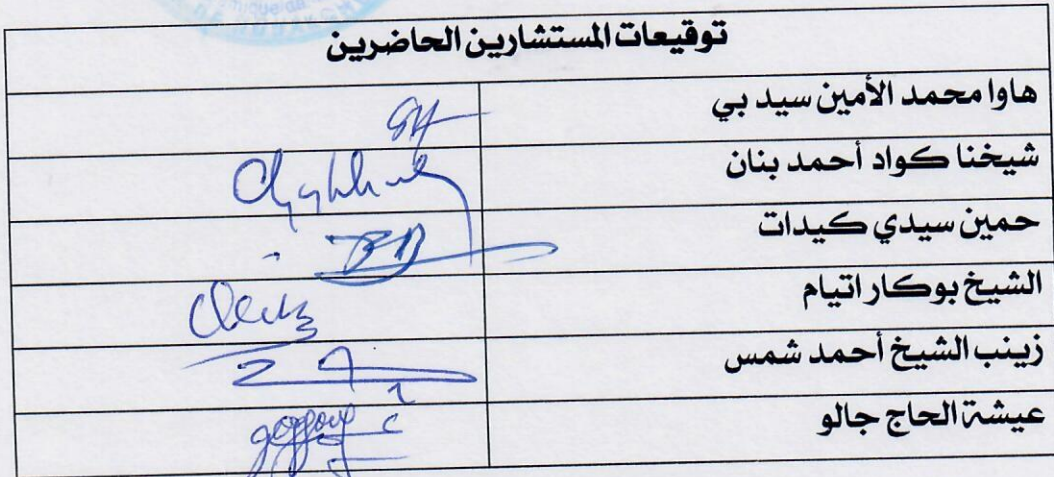 توقيعات المستشارين الحاضرين
هاوا محمد الأمين سيد بي
شيخنا كواد أحمد بنان
حمين سيدي كيدات
الشيخ بوكار اتيام
زينب الشيخ أحمد شمس
عيشة الحاج جالو